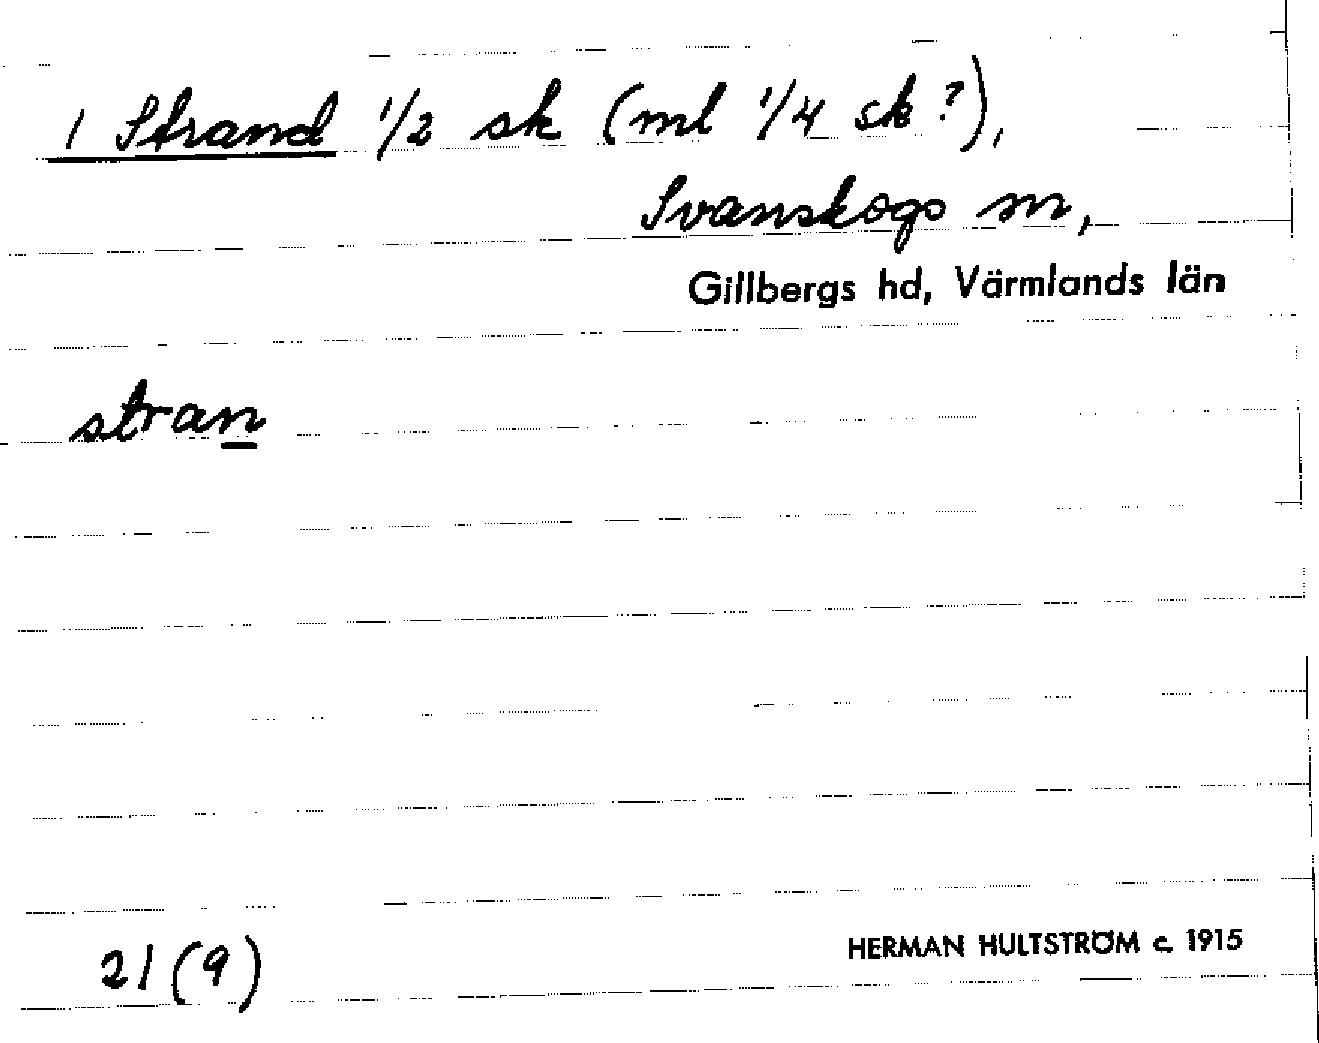 1 Strand 1/2 sk (ml 1/4 sk?),
Svanskogs sn,
Gillbergs hd, Värmlands län
stran
21(9)
HERMAN HULTSTRÖM c. 1915